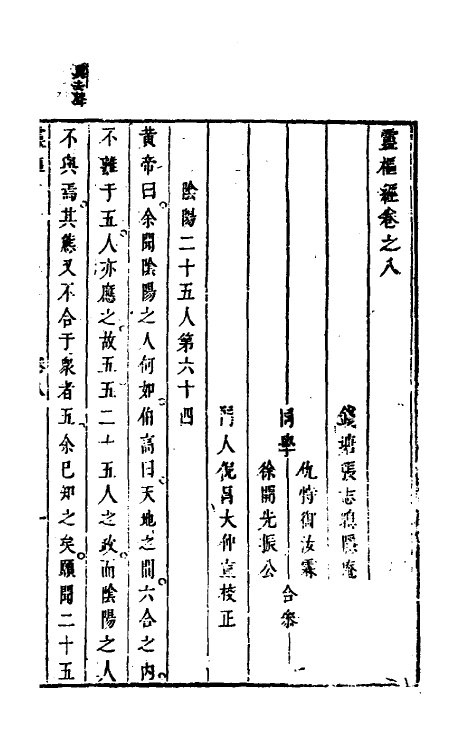 靈樞經卷之八
錢塘張志聰隱庵
同學
仇時御汝霖
徐開先振公
合參
門人倪昌大仲宣校正
陰陽二十五人第六十四
黄帝曰余聞陰陽之人何如伯高曰天地之間六合之内
不離于五人亦應之故五五二十五人之政而陰陽之人
不與焉其態又不合于衆者五余已知之矣願聞二十五
卷八
一